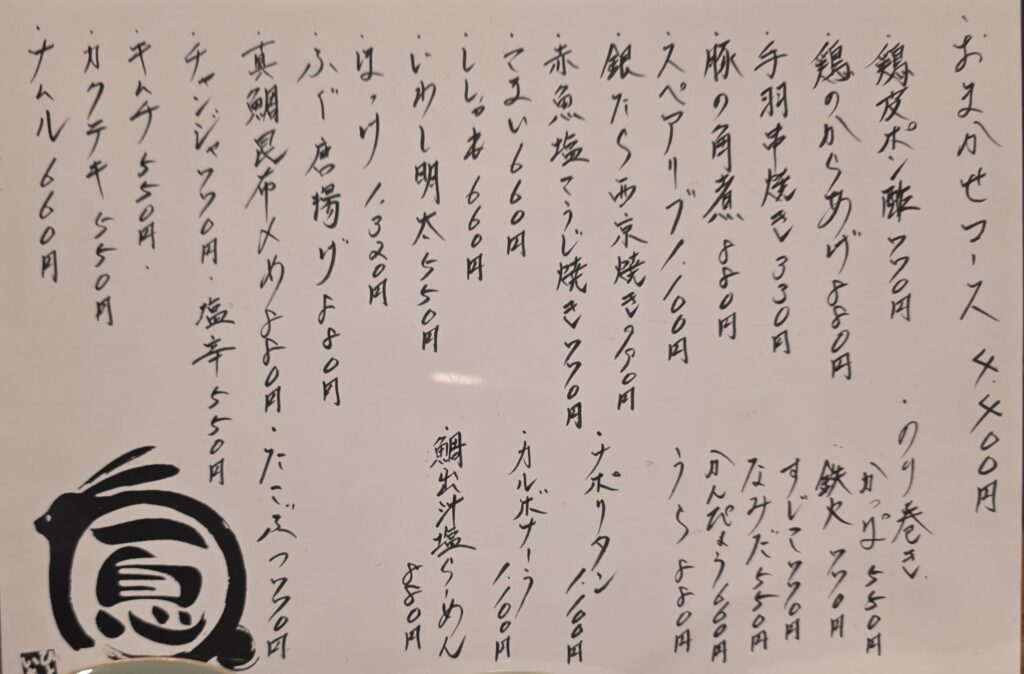 ・おまかせコース 4.400円
・鶏皮ポン酢 770円
・鶏のからあげ 880円
・手羽串焼き 330円
・豚の角煮 880円
・スペアリブ 1.100円
・銀だら西京焼き 990円
・赤魚塩こうじ焼き 770円
・こまい 660円
・ししゃも 660円
・いわし明太 550円
・ほっけ 1.320円
・ふぐ唐揚げ 880円
・真鯛昆布〆め 880円・たこぶつ 770円
・チャンジャ 770円・塩辛 550円
・キムチ 550円
・カクテキ 550円
・ナムル 660円
・のり巻き
かっぱ 550円
鉄火 770円
すじこ 770円
なみだ 550円
かんぴょう 660円
うら 880円
・ナポリタン 1.100円
・カルボナーラ 1.100円
・鯛出汁塩らーめん 880円
一息